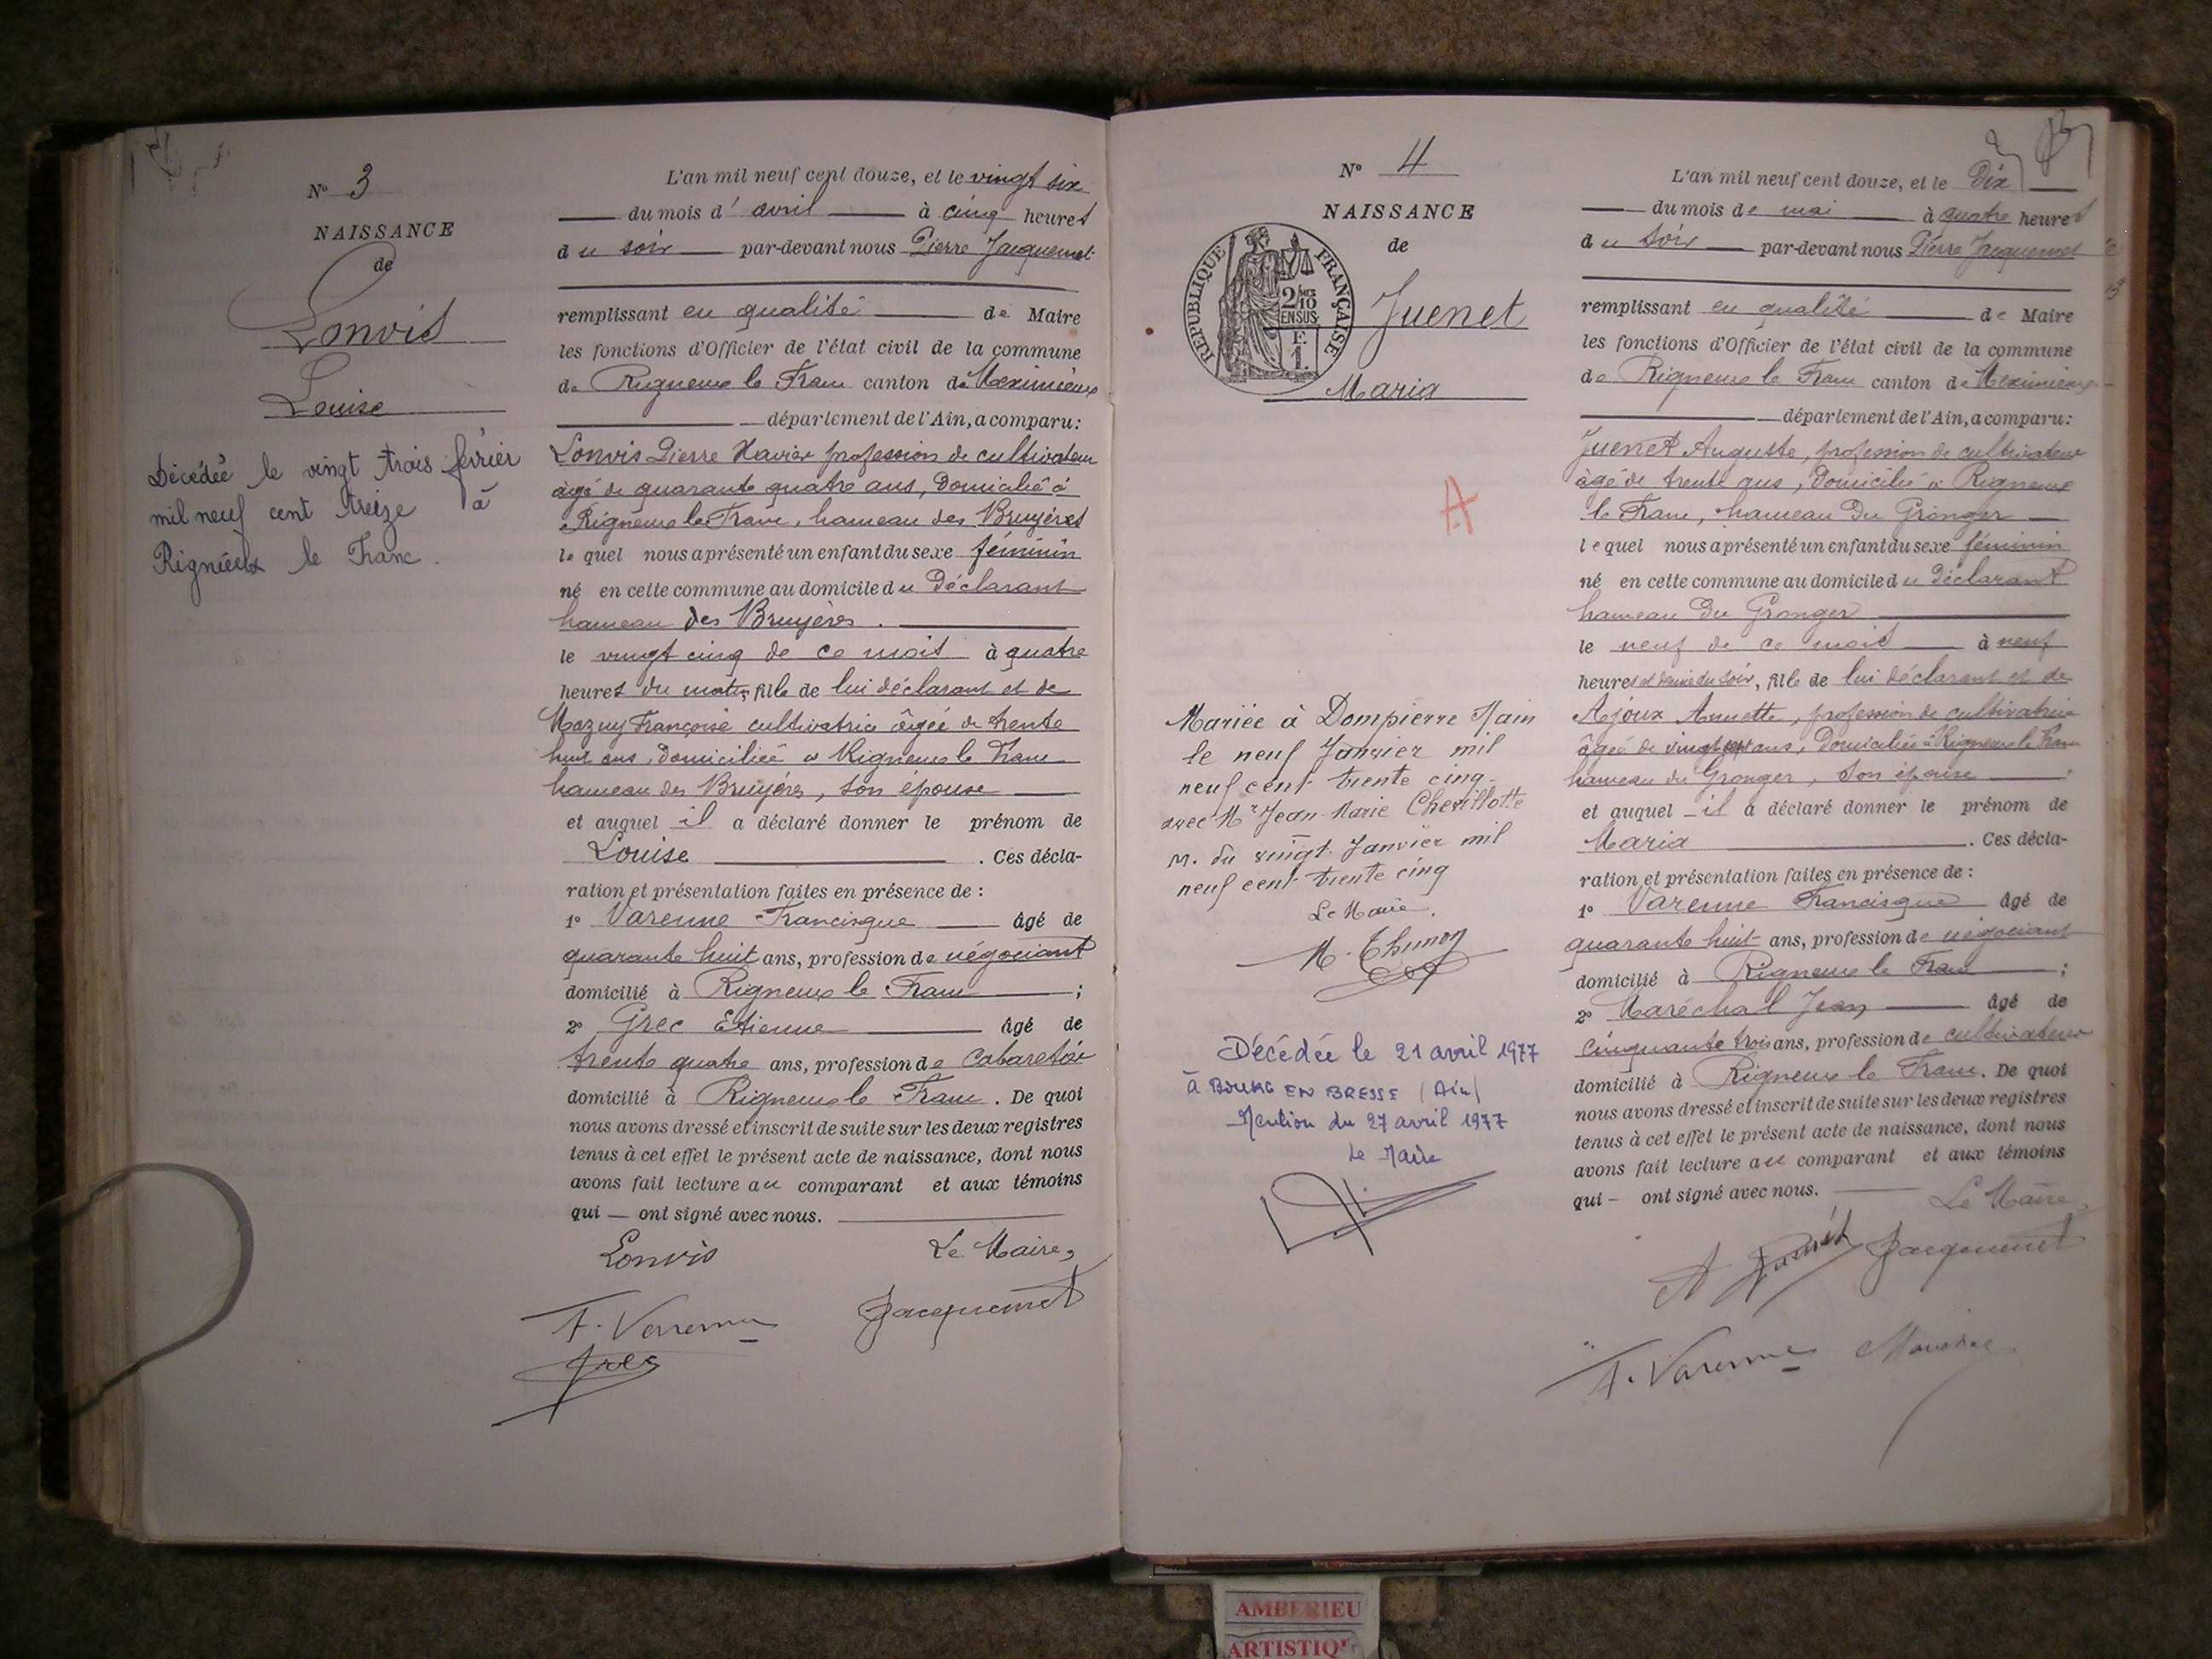 N° 3
NAISSANCE
de
Lonvis
Louise
Décédée le vingt trois février
mil neuf cent treize à
Rignieux le Franc.
L'an mil neuf cent douze, et le vingt six
du mois d' avril à cinq heures
du soir par-devant nous Pierre Jacquemet
remplissant en qualité de Maire
les fonctions d'Officier de l'état civil de la commune
de Rigneux le Franc canton de Meximieux
département de l'Ain, a comparu:
Lonvis Pierre Xavier profession de cultivateur
âgé de quarante quatre ans, domicilié à
Rigneux le Franc, hameau des Bruyères
lequel nous a présenté un enfant du sexe féminin
né en cette commune au domicile du déclarant
hameau des Bruyères.
le vingt cinq de ce mois à quatre
heures du matin, fille de lui déclarant et de
Mazuy Françoise cultivatrice âgée de trente
huit ans, domiciliée à Rigneux le Franc
hameau des Bruyères, son épouse
et auquel il a déclaré donner le prénom de
Louise . Ces décla-
ration et présentation faites en présence de :
1° Varenne Francisque âgé de
quarante huit ans, profession de négociant
domicilié à Rigneux le Franc ;
2° Grec Etienne âgé de
trente quatre ans, profession de cabaretier
domicilié à Rigneux le Franc. De quoi
nous avons dressé et inscrit de suite sur les deux registres
tenus à cet effet le présent acte de naissance, dont nous
avons fait lecture au comparant et aux témoins
qui — ont signé avec nous.
Lonvis Le Maire,
F. Varenne Jacquemet
Grec
N° 4
NAISSANCE
de
RÉPUBLIQUE FRANÇAISE
2/10 EN SUS
F. 1.
Juenet
Maria
A
Mariée à Dompierre d'ain
le neuf Janvier mil
neuf cent trente cinq
avec Mr Jean Marie Chevillotte
M. du vingt Janvier mil
neuf cent trente cinq
Le Maire,
M. Thunon
Décédée le 21 avril 1977
à BOURG EN BRESSE (Ain)
Mention du 27 avril 1977
Le Maire
L'an mil neuf cent douze, et le Dix
du mois de mai à quatre heures
du soir par-devant nous Pierre Jacquemet
remplissant en qualité de Maire
les fonctions d'Officier de l'état civil de la commune
de Rigneux le Franc canton de Meximieux
département de l'Ain, a comparu:
Juenet Auguste, profession de cultivateur
âgé de trente ans, domicilié à Rigneux
le Franc, hameau du Gronger
lequel nous a présenté un enfant du sexe féminin
né en cette commune au domicile du déclarant
hameau du Gronger
le neuf de ce mois à neuf
heures et demie du soir, fille de lui déclarant et de
Ajoux Annette, profession de cultivatrice
âgée de vingt sept ans, domiciliée à Rigneux le Franc
hameau du Gronger, son épouse
et auquel il a déclaré donner le prénom de
Maria . Ces décla-
ration et présentation faites en présence de :
1° Varenne Francisque âgé de
quarante huit ans, profession de négociant
domicilié à Rigneux le Franc ;
2° Maréchal Jean âgé de
cinquante trois ans, profession de cultivateur
domicilié à Rigneux le Franc. De quoi
nous avons dressé et inscrit de suite sur les deux registres
tenus à cet effet le présent acte de naissance, dont nous
avons fait lecture au comparant et aux témoins
qui — ont signé avec nous.
Le Maire,
A Juenet Jacquemet
F. Varenne
AMBERIEU
ARTISTIQUE